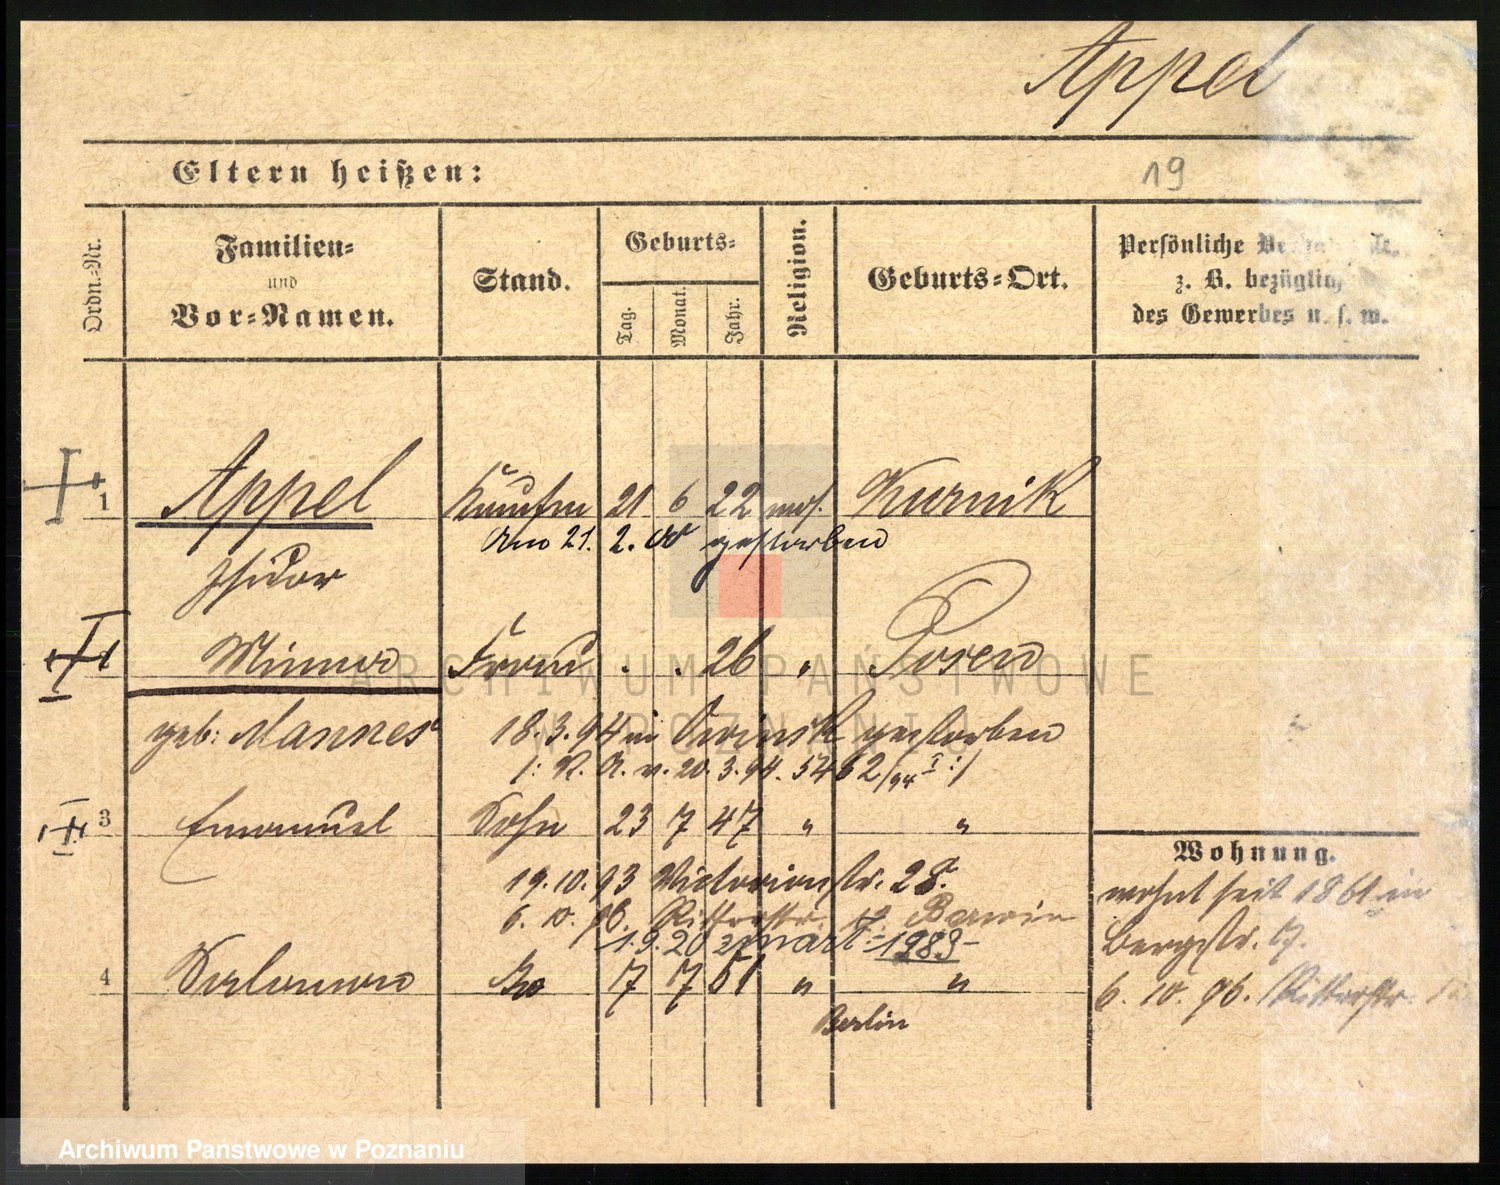 Appel
Eltern heißen:
19
Ordn.-Nr.
Familien-
und
Vor-Namen.
Stand.
Geburts-
Tag.
Monat.
Jahr.
Religion.
Geburts-Ort.
Persönliche
z. B. bezüglich
des Gewerbes u. s. w.
1 Appel Kaufm 21 6 22 mos. Kurnik
Am 21. 2. gestorben
Isidor
Minna Frau . . 26 " Posen
ARCHIWUM PAŃSTWOWE
geb: Mannes 18.3.94 in gestorben
W POZNANIU
20.3.94. 5462/94 I :/
3 Emanuel Sohn 23 7 47 " "
Wohnung.
19.10.93 Victoriastr. 28.
wohnt seit 1861 in
6. 10. 96. Ritterstr.
Bergstr. 17.
1.9.20
4 Salomon 7 7 51 " "
6. 10. 96. Ritterstr.
Berlin
Archiwum Państwowe w Poznaniu